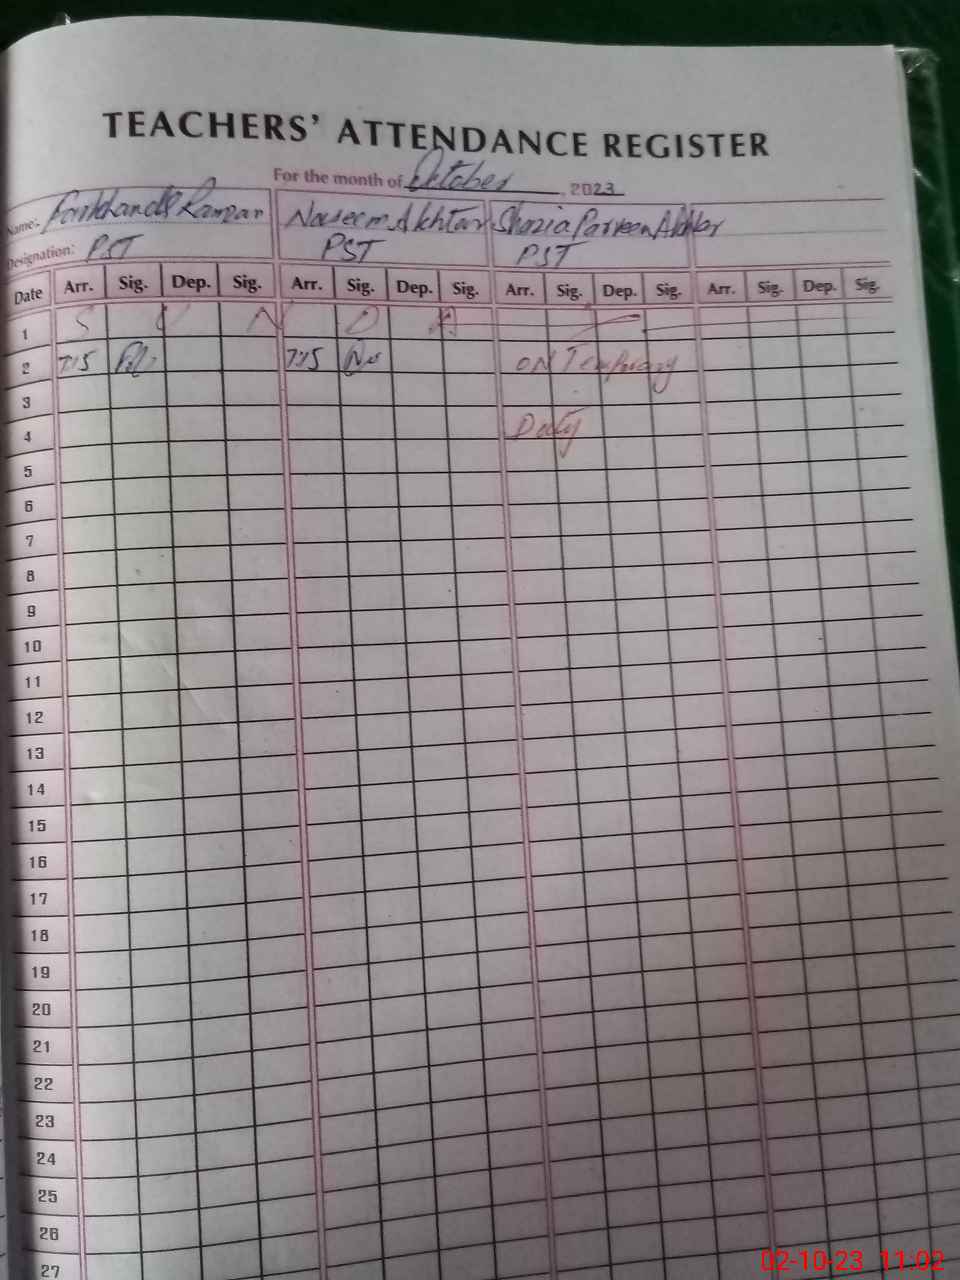 TEACHERS' ATTENDANCE REGISTER
For the month of October, 2023
Name:- Farkhanda Ramzan Naseem Akhtar Shazia Parveen Akhter
Designation: PST PST PST
Date Arr. Sig. Dep. Sig. Arr. Sig. Dep. Sig. Arr. Sig. Dep. Sig. Arr. Sig. Dep. Sig.
1 S U N D A Y
2 7:15 7:15 ON Temporary
3
4 Duty
5
6
7
8
9
10
11
12
13
14
15
16
17
18
19
20
21
22
23
24
25
26
27
02-10-23 11:02